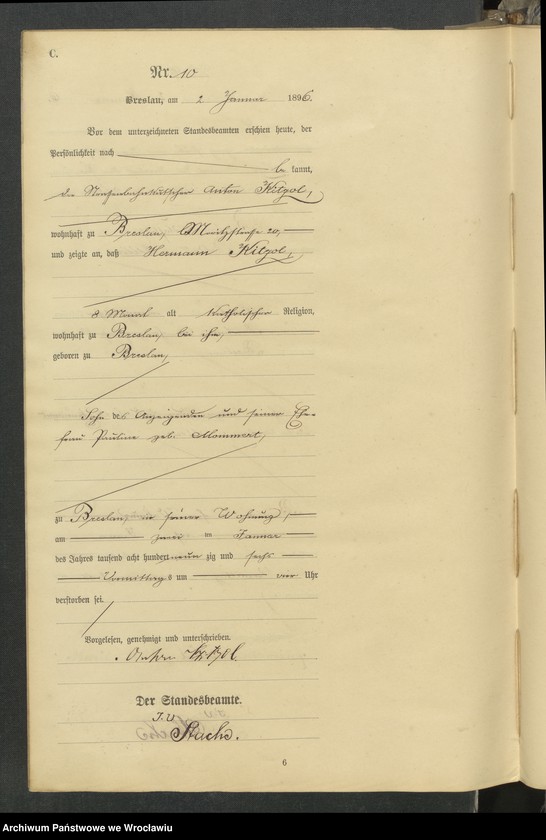 C.
Nr. 10
Breslau, am 2 Januar 1896.
Vor dem unterzeichneten Standesbeamten erschien heute, der
Persönlichkeit nach
be kannt,
der Straßenbahnkutscher Anton Kitzol,
wohnhaft zu Breslau, Moritzstrasse 20,
und zeigte an, daß Hermann Kitzol,
8 Monat alt katholischer Religion,
wohnhaft zu Breslau, bei ihm,
geboren zu Breslau,
Sohn des Anzeigenden und seiner Ehe-
frau Pauline geb. Mommert,
zu Breslau, in seiner Wohnung,
am zwei ten Januar
des Jahres tausend acht hundert neun zig und sechs
Vormittags um vier Uhr
verstorben sei.
Vorgelesen, genehmigt und unterschrieben.
Der Standesbeamte.
I.V.
6
Archiwum Państwowe we Wrocławiu